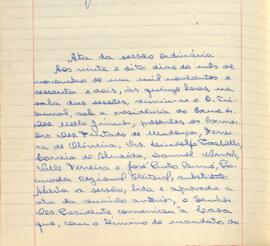 Ata da sessão ordinária
Aos vinte e oito dias do mês de
novembro de um mil novecentos e
sessenta e dois, às quinze horas, na
sala das sessões, reuniu-se o E. Tri-
bunal, sob a presidência do Exmo.
Des. Mello Júnior, presentes os Exmos
Srs. Des. Furtado de Mendonça, Ferrei-
ra de Oliveira, Drs. Lindolfo
Correia de Almeida, Samuel
Valle Ferreira e José Pinto
Regional Eleitoral, substituto
a sessão, lida e aprovada a
ata da reunião anterior, o Senhor
Des. Presidente comunicou à Casa
que, com o término do mandato do